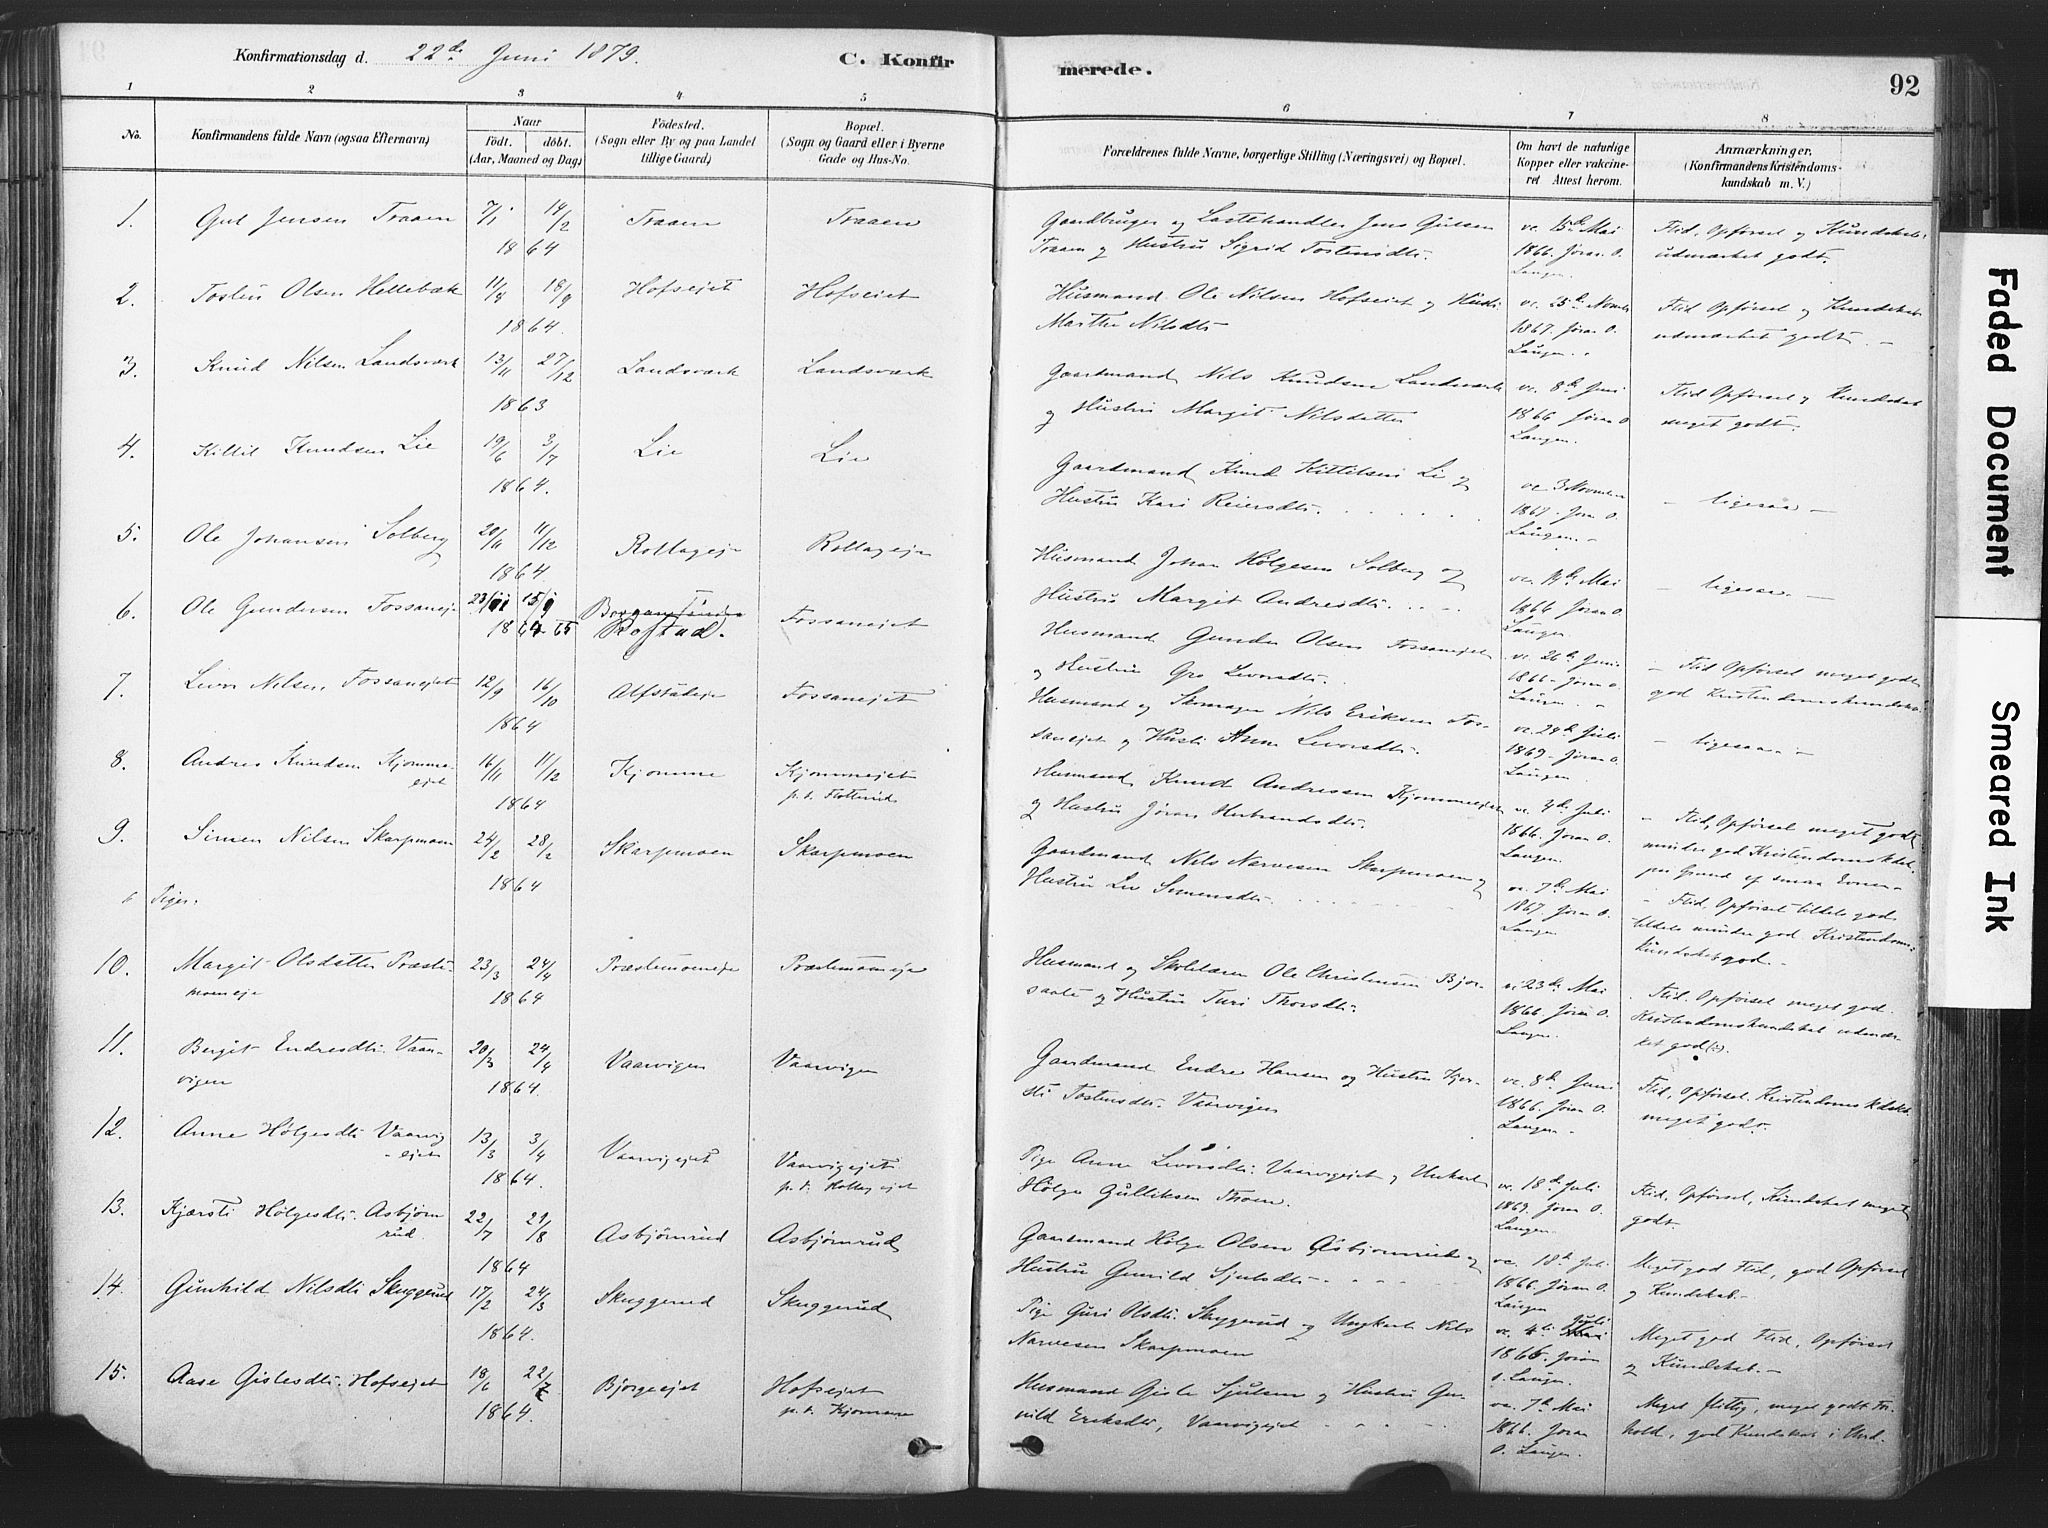 Konfirmationsdag d. 22de Juni 1879.
C. Konfir
merede.
92
1 2 3 4 5 6 7 8
No.
Konfirmandens fulde Navn (ogsaa Efternavn)
Naar
født. døbt.
(Aar, Maaned og Dag)
Fødested.
(Sogn eller By og paa Landet
tillige Gaard)
Bopæl.
(Sogn og Gaard eller i Byerne
Gade og Hus-No.
Forældrenes fulde Navne, borgerlige Stilling (Næringsvei) og Bopæl.
Om havt de naturlige
Kopper eller vakcine-
ret Attest herom.
Anmærkninger.
(Konfirmandens Kristendoms-
kundskab m. V.)
1. Gul Jensen Traaen 7/1 14/2 1864 Traaen Traaen
Gaardbruger og Lastehandler Jens Gulsen
Traaen og Hustru Sigrid Tostensdtr.
vc. 15de Mai
1866. Jøran O.
Laugen.
Flid, Opførsel og Kundskab
udmærket godt.
2. Tosten Olsen Hellebæk 11/8 18/9 1864. Hofsejet Hofseiet
Husmand Ole Nilsen Hofseiet og Hust.
Marthe Nilsdtr
vc. 25de Novembr
1867. Jøran O.
Laugen.
Flid Opførsel og Kundskab
udmærket godt. -
3. Knud Nilsen Landsværk 13/11 27/12 1863 Landsværk Landsværk
Gaardmand Nils Knudsen Landsværk
og Hustru Margit Nilsdatter
vc. 8de Juni
1866 Jøran O
Laugen.
Flid Opførsel og Kundskab
meget godt.
4. Kittil Knudsen Lie 19/6 3/7 1864. Lie Lie
Gaardmand Knud Kittilsen Li og
Hustru Kari Reiersdtr.
vc 3 November
1867. Jøran O.
Laugen. -
- ligesaa -
5. Ole Johansen Solberg 20/11 11/12 1864 Rollageje Rollageje
Husmand Johan Hølgesen Solberg og
Hustru Margit Andresdtr.
vc. 14de Mai
1866 Jøran O.
Laugen.
- ligesaa -
6. Ole Gundersen Fossaneje 23/11 15/1 1864 65 Rostad. Fossanejet
Husmand Gunder Olsen Fossanejet
og Hustru Gro Levorsdtr.
vc. 26de Juni
1866- Jøran O.
Laugen.
- Flid Opførsel meget godt
god Kristendomskundskab.
7. Levor Nilsen Fossanejet 12/9 16/10 1864 Alfstadeje Fossanejet
Husmand og Skomager Nils Eriksen Fos-
sanejet og Hustr Anne Levorsdtr.
vc. 29de Juli
1869- Jøran O.
Laugen.
- ligesaa -
8. Andres Knudsen Kjomme-
ejet 16/11 11/12 1864 Kjomme Kjommejet
p. t. Flotterud
Husmand Knud Andressen Kjommeejet
og Hustru Jøran Herbrandsdtr.
vc. 4de Juli
1866. Jøran O.
Laugen.
- Flid, Opførsel meget godt
mindre god Kristendomskdsk.
pa Grund af smaa Evner -
9. Simen Nilsen Skarpmoen 24/2 28/2 1864 Skarpmoen Skarpmoen
Gaardmand Nils Narvesen Skarpmoen og
Hustru Liv Simensdtr.
vc. 7de Mai
1867. Jøran O.
Laugen
- Flid, Opførsel tildels god
tildels mindre god Kristendoms-
kundskab god. -
6 Piger.
10. Margit Olsdatter Præste-
moeneje 23/3 24/4 1864 Præstemoeneje Præstemoeneje
Husmand og Skolelærer Ole Christensen Bjor-
saate og Hustru Turi Thorsdtr.
vc 23de Mai
1866. Jøran O.
Laugen.
Flid. Opførsel meget god.
Kristendomskundskab udmær-
ket god
11. Bergit Endresdtr. Vaar-
vigen 20/3 24/4 1864. Vaarvigen Vaarvigen
Gaardmand Endre Hansen og Hustru Kjer-
sti Tostensdtr. Vaarvigen
vc. 8de Juni
1866. Jøran O.
Laugen. -
Flid, Opførsel. Kristendoms kdskb.
meget godt.
12. Anne Hølgesdtr Vaarvig
ejet 13/3 3/4 1864. Vaarvigejet Vaarvigejet
p. t. Rollagejet
Pige Anne Levorsdtr. Vaarvigejet og Unkarl
Hølge Gulliksen Thoen.
vc. 18de Juli
1869. Jøran O.
Laugen.
Flid, Opførsel, Kundskab meget
godt
13. Kjærsti Hølgesdtr. Asbjørn
rud 22/7 21/8 1864 Asbjørnrud Asbjørnrud
Gaardmand Hølge Olsen Asbjørnrud og
Hustru Gunild Sjulsdtr.
vc. 18de Juli
1866. Jøran O.
Laugen
Meget god Flid, god Opførsel
og Kundskab. -
14. Gunhild Nilsdtr Skuggerud 17/2 24/3 1864. Skuggerud Skuggerud
Pige Guri Olsdtr. Skuggerud og Ungkarl Nils
Narvesen Skarpmoen
vc. 4de Juli
1866. Jøran
O. Laugen.
Meget god Flid, Opførsel
og Kundskab. -
15. Aase Gislesdtr. Hofsejet 18/6 22/7 1864. Bjørgeejet Hofsejet
p. t. Kjomme
Husmand Gisle Sjulsen og Hustru Gu-
nild Eriksdtr, Vaarvigejet
vc. 7de Mai
1866. Jøran
O. Laugen.
Meget flittig, meget godt For-
hold, god Kundskab i Chrd.
Faded Document
Smeared Ink